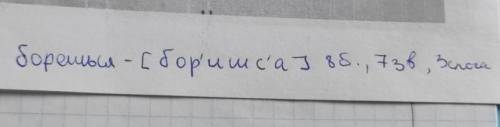 борешься - [бор'ишс'а] 8б., 7зв, 3слога